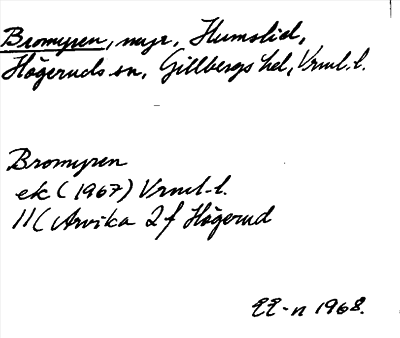 Bromyren, myr, Humslid,
Högeruds sn, Gillbergs hd, Vrml. l.
Bromyren
ek (1967) Vrml. l.
11C Arvika 2 f Högerud
EE-n 1968.